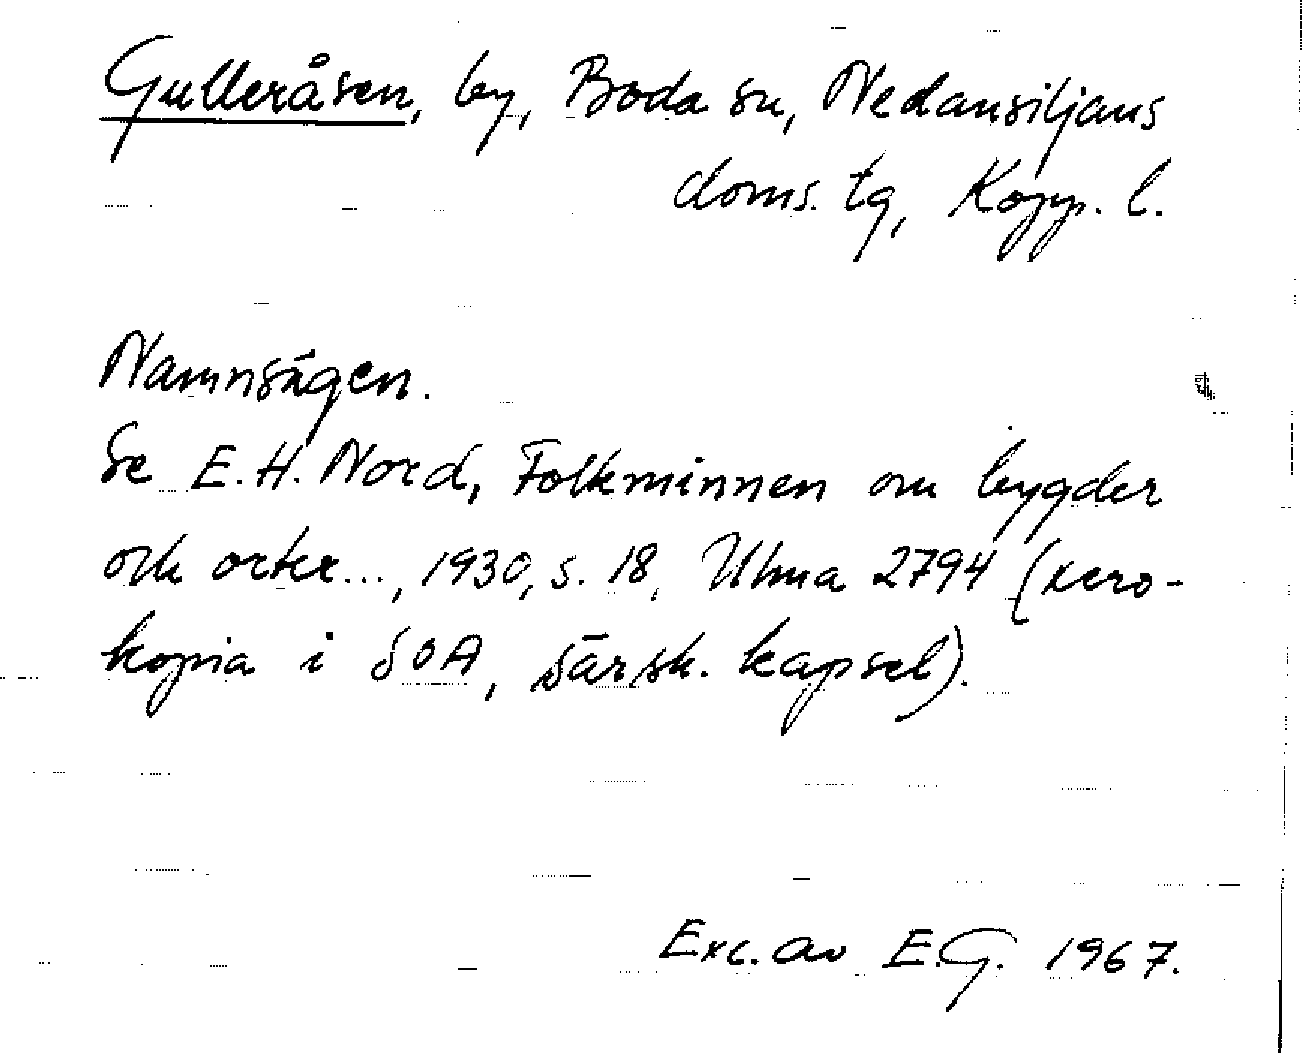 Gulleråsen, by, Boda sn, Nedansiljans
doms. tg, Kopp. l.
Namnsägen.
Se E. H. Nord, Folkminnen om bygder
och orter..., 1930, s. 18, Ulma 2794 (xero-
kopia i SOA, särsk. kapsel).
Exc. av E.G. 1967.